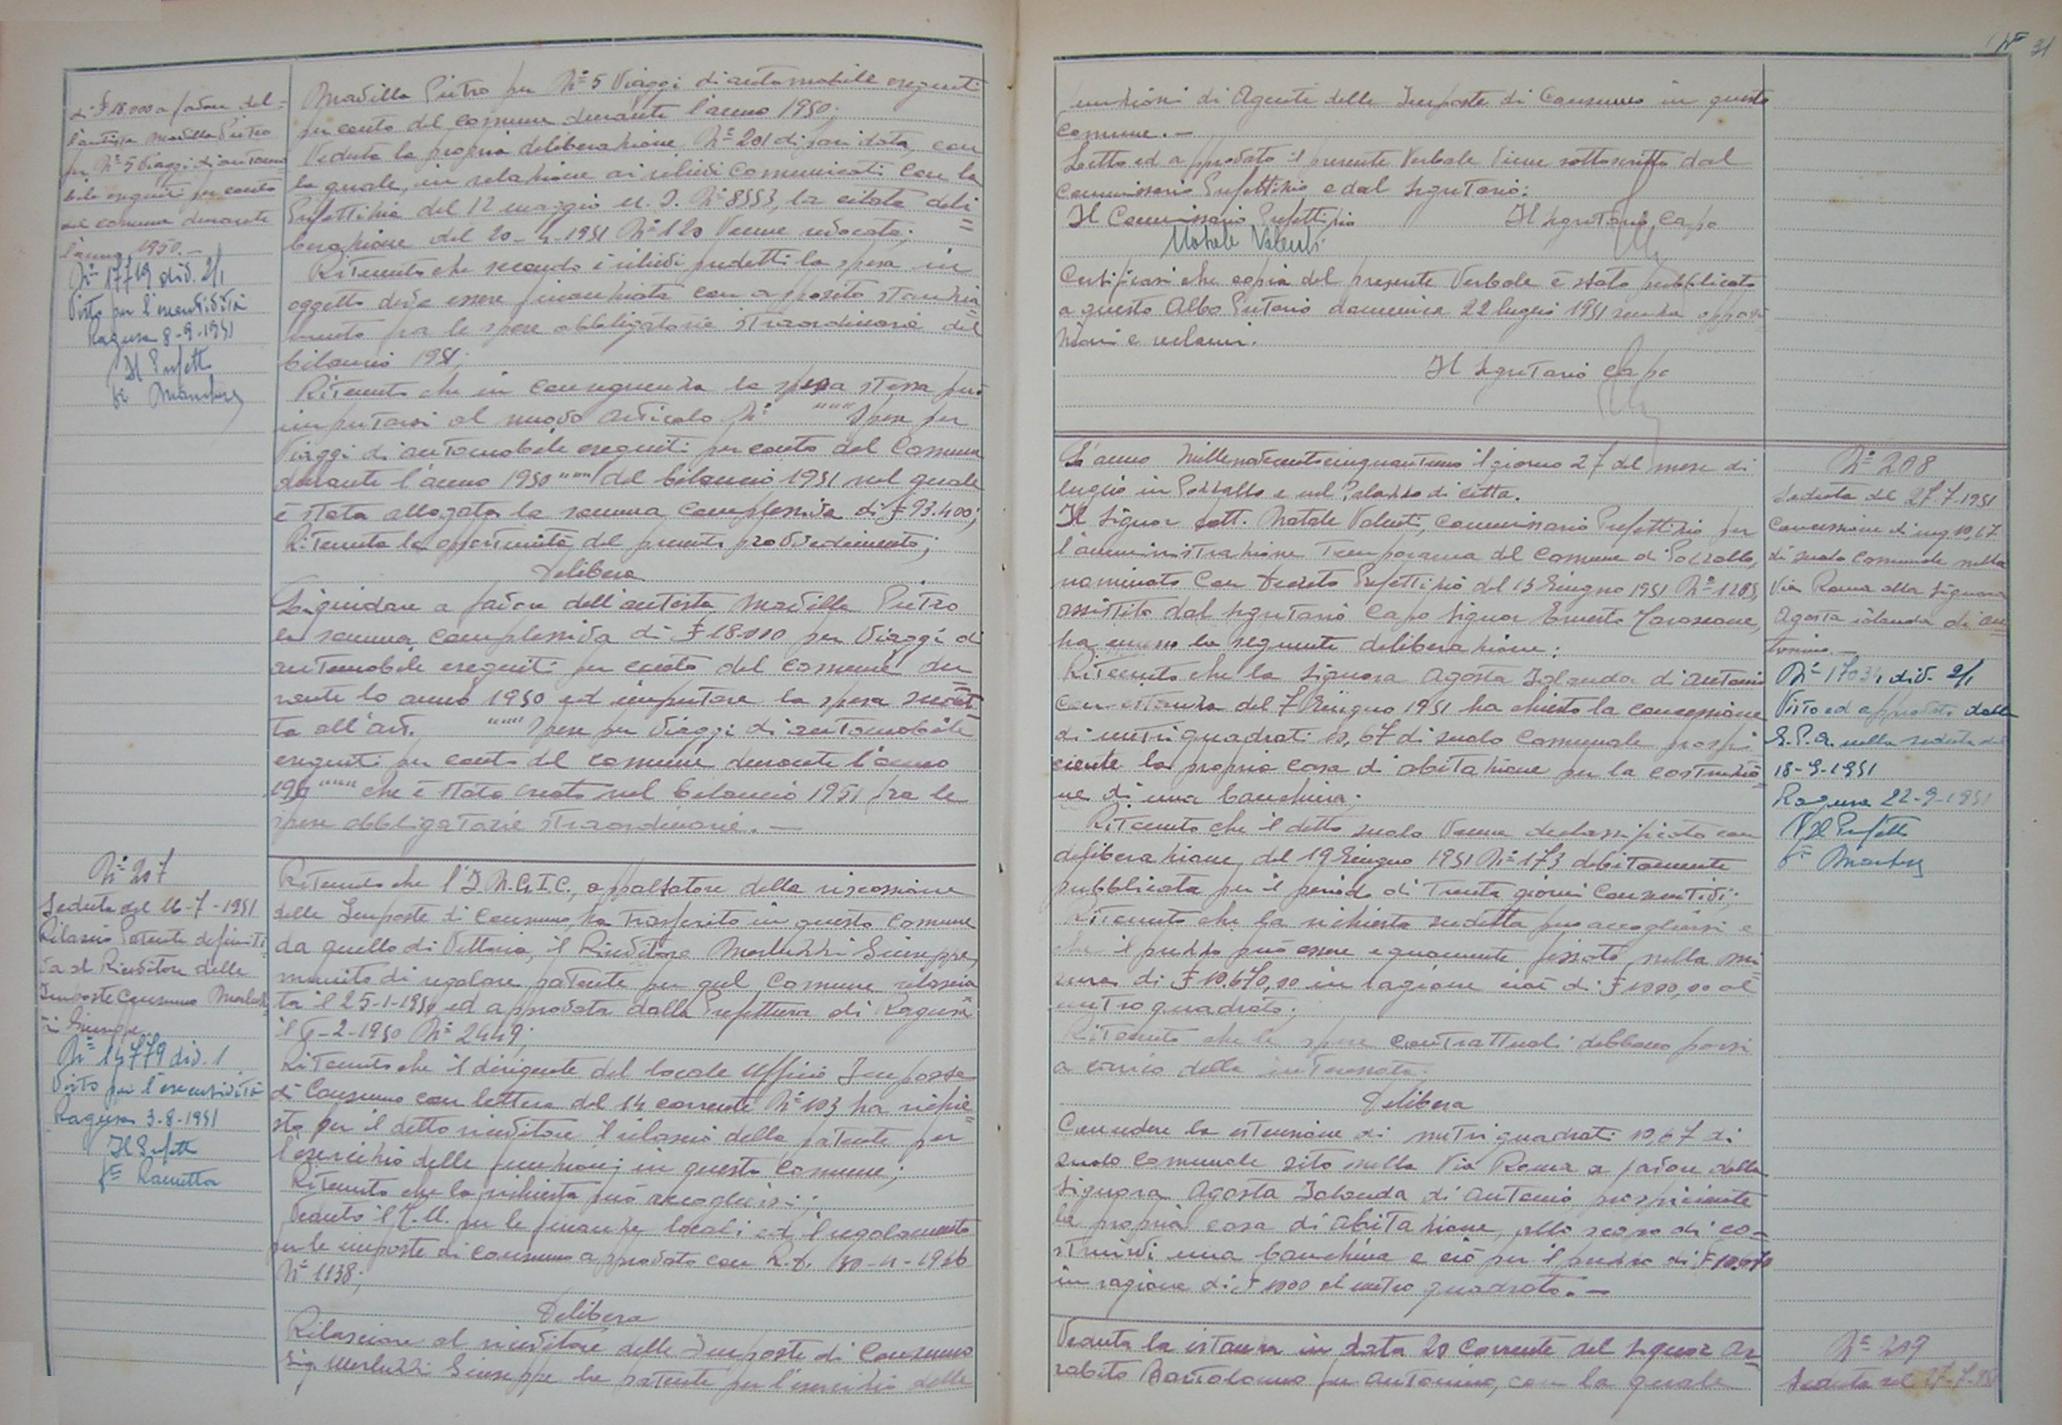 di £ 18.000 a favore del=
l'autista Modilla Pietro
per N° 5 Viaggi di automo
bile eseguiti per conto
del comune durante
l'anno 1950. —
N° 17719 div. 2/1
Visto per l'esecutività
Ragusa 8-9-1951
Il Prefetto
Modilla Pietro per N° 5 Viaggi di automobile eseguiti
per conto del comune durante l'anno 1950;
Veduta la propria deliberazione N° 201 di pari data, con
la quale, in relazione ai rilievi comunicati con la
Prefettizia del 12 maggio u. s. N° 8553, la citata deli
berazione del 20-4-1951 N° 120 Venne revocata;
Ritenuto che secondo i rilievi predetti la spesa in
oggetto deve essere finanziata con apposito stanzia
mento fra le spese obbligatorie straordinarie del
bilancio 1951;
Ritenuto che in conseguenza la spesa stessa può
imputarsi al nuovo articolo N° """ Spese per
Viaggi di automobile eseguiti per conto del Comune
durante l'anno 1950 """ del bilancio 1951 nel quale
è stata allogata la somma complessiva di £ 93.400;
Ritenuta la opportunità del presente provvedimento;
Delibera
Liquidare a favore dell'autista Modilla Pietro
la somma complessiva di £ 18.000 per Viaggi di
automobile eseguiti per conto del comune du
rante lo anno 1950 ed imputare la spesa suddet
ta all'art. """ Spese per Viaggi di automobile
eseguiti per conto del comune durante l'anno
195 """ che è stato creato nel bilancio 1951 fra le
spese obbligatorie straordinarie. —
N° 207
Seduta del 16-7-1951
Rilascio Patente definiti
va al Ricevitore delle
Imposte Consumo
Giuseppe
N° 14779 div. 1
Visto per l'esecutività
Ragusa 3-8-1951
Il Prefetto
Ritenuto che l'I.N.G.I.C., appaltatore della riscossione
delle Imposte di Consumo, ha trasferito in questo Comune
da quello di Vittoria, il Ricevitore Giuseppe,
munito di regolare patente per quel Comune rilascia
ta il 25-1-1950 ed approvata dalla Prefettura di Ragusa
il 6-2-1950 N° 2449;
Ritenuto che il dirigente del locale Ufficio Imposte
di Consumo con lettera del 14 corrente N° 103 ha richie
sto per il detto ricevitore il rilascio della patente per
l'esercizio delle funzioni in questo Comune;
Ritenuto che la richiesta può accogliersi;
Veduto il T.U. per le finanze locali ed il regolamento
per le imposte di consumo approvato con R.D. 30-4-1936
N° 1138;
Delibera
Rilasciare al ricevitore delle Imposte di Consumo
Sig. Giuseppe la patente per l'esercizio delle
31
funzioni di Agente delle Imposte di Consumo in questo
Comune. —
Letto ed approvato il presente Verbale viene sottoscritto dal
Commissario Prefettizio e dal Segretario:
Il Commissario Prefettizio Il Segretario Capo
Natale Valenti
Certificasi che copia del presente Verbale è stato pubblicato
a questo Albo Pretorio domenica 22 luglio 1951 senza opposi
zioni e reclami.
Il Segretario Capo
L'anno Millenovecentocinquantuno il giorno 27 del mese di
luglio in Pozzallo e nel Palazzo di Città.
Il Signor Dott. Natale Valenti, Commissario Prefettizio per
l'amministrazione Temporanea del Comune di Pozzallo,
nominato con Decreto Prefettizio del 13 Giugno 1951 N° 1285,
assistito dal Segretario Capo Signor Ernesto
ha emesso la seguente deliberazione:
Ritenuto che la Signora Agosta Iolanda di Antonio
con istanza del 7 Giugno 1951 ha chiesto la concessione
di metri quadrati 10,67 di suolo Comunale prospi
ciente la propria casa di abitazione per la costruzio
ne di una banchina;
Ritenuto che il detto suolo Venne declassificato con
deliberazione del 19 Giugno 1951 N° 173 debitamente
pubblicata per il periodo di Trenta giorni Consecutivi;
Ritenuto che la richiesta sudetta può accogliersi e
che il prezzo può essere equamente fissato nella mi
sura di £ 10.670,00 in ragione cioè di £ 1000,00 al
metro quadrato;
Ritenuto che le spese contrattuali debbono porsi
a carico della interessata.
Delibera
Concedere la estensione di metri quadrati 10,67 di
suolo comunale sito nella Via Roma a favore della
Signora Agosta Iolanda di Antonio prospiciente
la propria casa di abitazione, allo scopo di co=
struirvi una banchina e ciò per il prezzo di £ 10.670
in ragione di £ 1000 al metro quadrato. —
Veduta la istanza in data 20 corrente del Signor Ar=
rabito Bartolomeo fu Antonino, con la quale
N° 208
Seduta del 27-7-1951
Concessione di mq 10,67
di suolo comunale nella
Via Roma alla Signora
Agosta Iolanda di An
tonino. —
div. 2/1
Visto ed approvato dalla
G.P.A. nella seduta del
18-9-1951
Ragusa 22-9-1951
Il Prefetto
N° 209
Seduta del 27-7-951